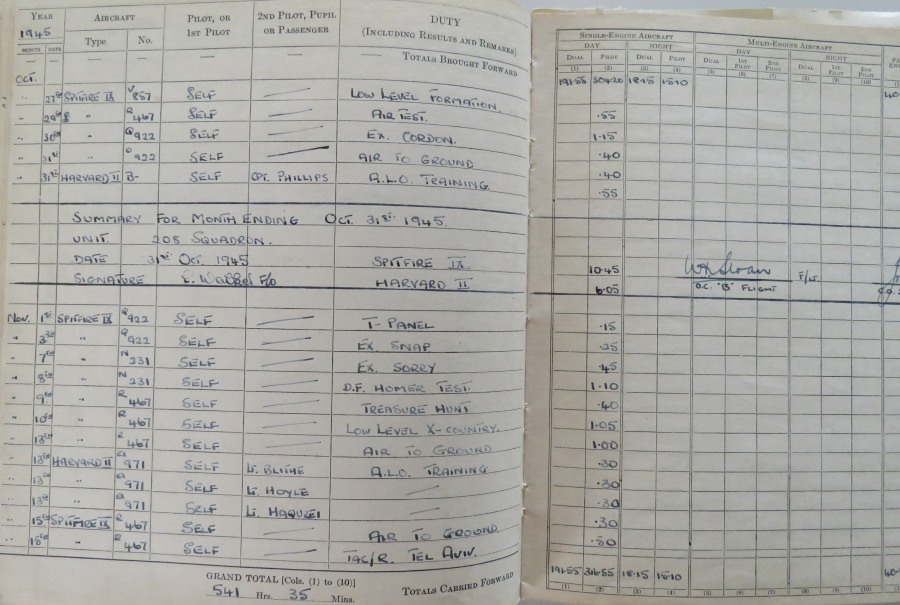 YEAR AIRCRAFT PILOT, OR 1ST PILOT 2ND PILOT, PUPIL OR PASSENGER DUTY (INCLUDING RESULTS AND REMARKS)
1945
MONTH DATE Type No.
— — — — — — TOTALS BROUGHT FORWARD
OCT.
" 27th SPITFIRE IX V 857 SELF — LOW LEVEL FORMATION.
" 29th " R 467 SELF — AIR TEST.
" 30th " Q 922 SELF — EX. CORDON.
" 31st " Q 922 SELF — AIR TO GROUND
" 31st HARVARD II B- SELF CPT. PHILLIPS A.L.O. TRAINING
SUMMARY FOR MONTH ENDING OCT. 31st 1945.
UNIT. 208 SQUADRON.
DATE 31st OCT. 1945 SPITFIRE IX.
SIGNATURE F/O HARVARD II.
NOV. 1st SPITFIRE IX Q 922 SELF — T- PANEL
" 3rd " Q 922 SELF — EX. SNAP.
" 7th " N 231 SELF — EX. SORRY
" 8th " N 231 SELF — D.F. HOMER TEST.
" 9th " R 467 SELF — TREASURE HUNT
" 10th " R 467 SELF — LOW LEVEL X-COUNTRY.
" 13th " R 467 SELF — AIR TO GROUND
" 13th HARVARD II 971 SELF LT. BLITHE A.L.O. TRAINING
" 13th " 971 SELF LT. HOYLE —
" 13th " 971 SELF LT. —
" 15th SPITFIRE IX R 467 SELF — AIR TO GROUND.
" 15th " R 467 SELF — TAC/R. TEL AVIV.
GRAND TOTAL [Cols. (1) to (10)]
541 Hrs. 35 Mins.
TOTALS CARRIED FORWARD
SINGLE-ENGINE AIRCRAFT MULTI-ENGINE AIRCRAFT
DAY NIGHT DAY NIGHT
DUAL PILOT DUAL PILOT DUAL 1ST PILOT 2ND PILOT DUAL 1ST PILOT 2ND PILOT
(1) (2) (3) (4) (5) (6) (7) (8) (9) (10)
191·55 304·20 18·15 15·10 40
·55
1·15
·40
·40
·55
10·45 F/LT.
6·05 O.C. "B" FLIGHT
·15
·25
·45
1·10
·40
1·05
1·00
·30
·30
·30
·30
·50
191·55 18·15 15·10 40
(1) (2) (3) (4) (5) (6) (7) (8) (9) (10)